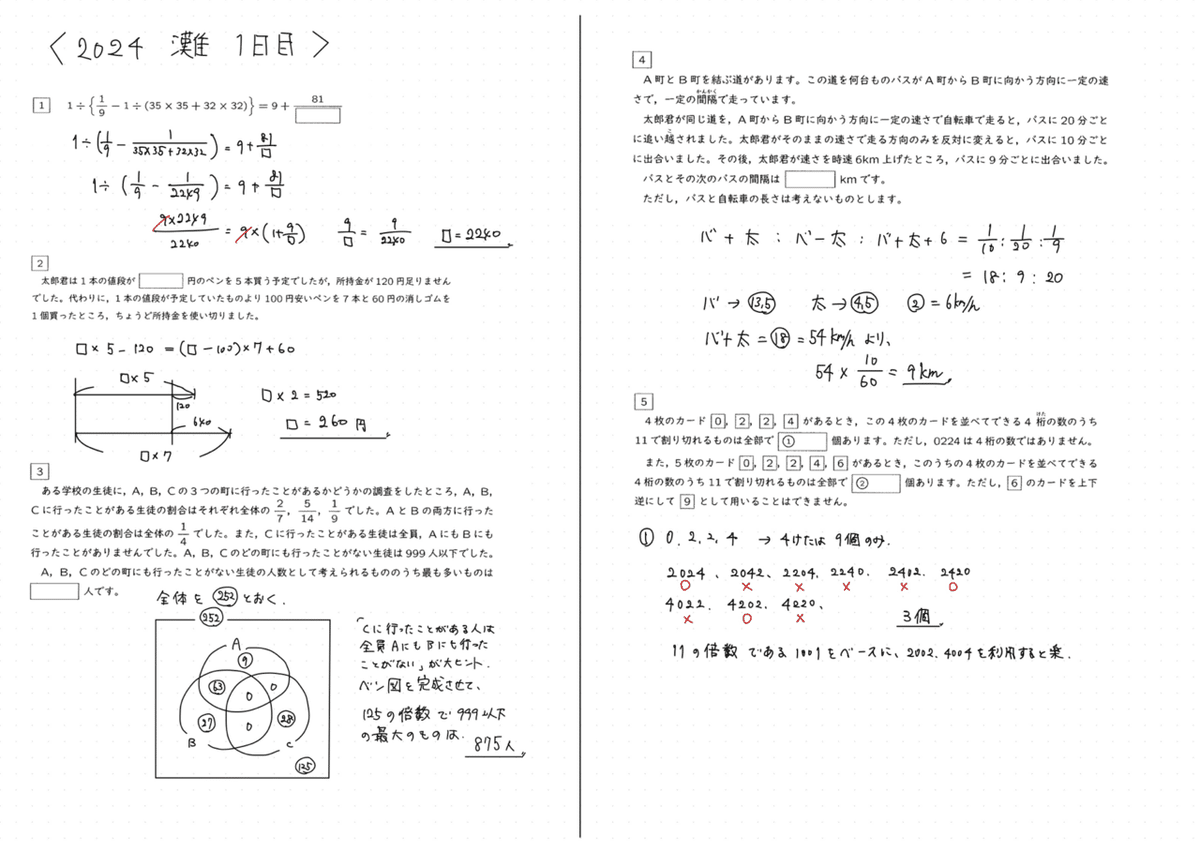 〈2024 灘 1日目〉
1 1÷{1/9−1÷(35×35+32×32)}=9+81/□
1÷(1/9 − 1/(35×35+32×32)) = 9+81/□
1÷(1/9 − 1/2249) = 9+81/□
9×2249/2240 = 9×(1+9/□) 9/□ = 9/2240 □=2240
2
太郎君は1本の値段が□円のペンを5本買う予定でしたが，所持金が120円足りません
でした。代わりに，1本の値段が予定していたものより100円安いペンを7本と60円の消しゴムを
1個買ったところ，ちょうど所持金を使い切りました。
□×5−120=(□−100)×7+60
□×5
120
640
□×7
□×2=520
□=260円
3
ある学校の生徒に，A，B，Cの3つの町に行ったことがあるかどうかの調査をしたところ，A，B，
Cに行ったことがある生徒の割合はそれぞれ全体の2/7，5/14，1/9でした。AとBの両方に行った
ことがある生徒の割合は全体の1/4でした。また，Cに行ったことがある生徒は全員，AにもBにも
行ったことがありませんでした。A，B，Cのどの町にも行ったことがない生徒は999人以下でした。
A，B，Cのどの町にも行ったことがない生徒の人数として考えられるもののうち最も多いものは
□人です。
全体を㉒52とおく.
252
A
9
63 0 0
27 0 28
B C
125
「Cに行ったことがある人は
全員AにもBにも行った
ことがない」が大ヒント.
ベン図を完成させて、
125の倍数で999以下
の最大のものは.
875人
4
A町とB町を結ぶ道があります。この道を何台ものバスがA町からB町に向かう方向に一定の速
さで，一定の間隔で走っています。
かんかく
太郎君が同じ道を，A町からB町に向かう方向に一定の速さで自転車で走ると，バスに20分ごと
に追い越されました。太郎君がそのままの速さで走る方向のみを反対に変えると，バスに10分ごと
こ
に出合いました。その後，太郎君が速さを時速6km上げたところ，バスに9分ごとに出合いました。
バスとその次のバスの間隔は□kmです。
ただし，バスと自転車の長さは考えないものとします。
バ+太:バ−太:バ+太+6=1/10:1/20:1/9
=18:9:20
バ→⑬.5 太→④.5 ②=6km/h
バ+太=⑱=54km/hより、
54×10/60=9km
5
4枚のカード0，2，2，4があるとき，この4枚のカードを並べてできる4桁の数のうち
けた
11で割り切れるものは全部で①個あります。ただし，0224は4桁の数ではありません。
また，5枚のカード0，2，2，4，6があるとき，このうちの4枚のカードを並べてできる
4桁の数のうち11で割り切れるものは全部で②個あります。ただし，6のカードを上下
逆にして9として用いることはできません。
① 0.2,2,4 →4けたは9個のみ.
2024、2042、2204、2240. 2402. 2420
○ × × × × ○
4022. 4202. 4220、
× ○ ×
3個
11の倍数である1001をベースに、2002.4004を利用すると楽.